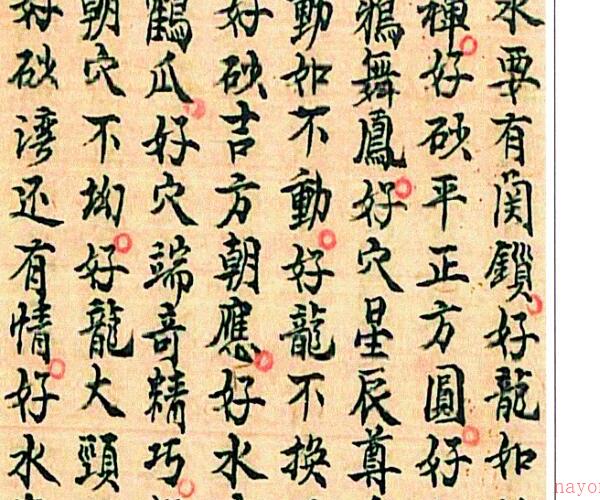 水要有関鎖好龍如
禪好砂平正方圓好
鴉舞鳳好穴星辰尊
動如不動好龍不換
好砂吉方朝應好水
鶴瓜好穴端竒精巧
朝穴不拗好龍大頸
好砂湾还有情好水
nayo